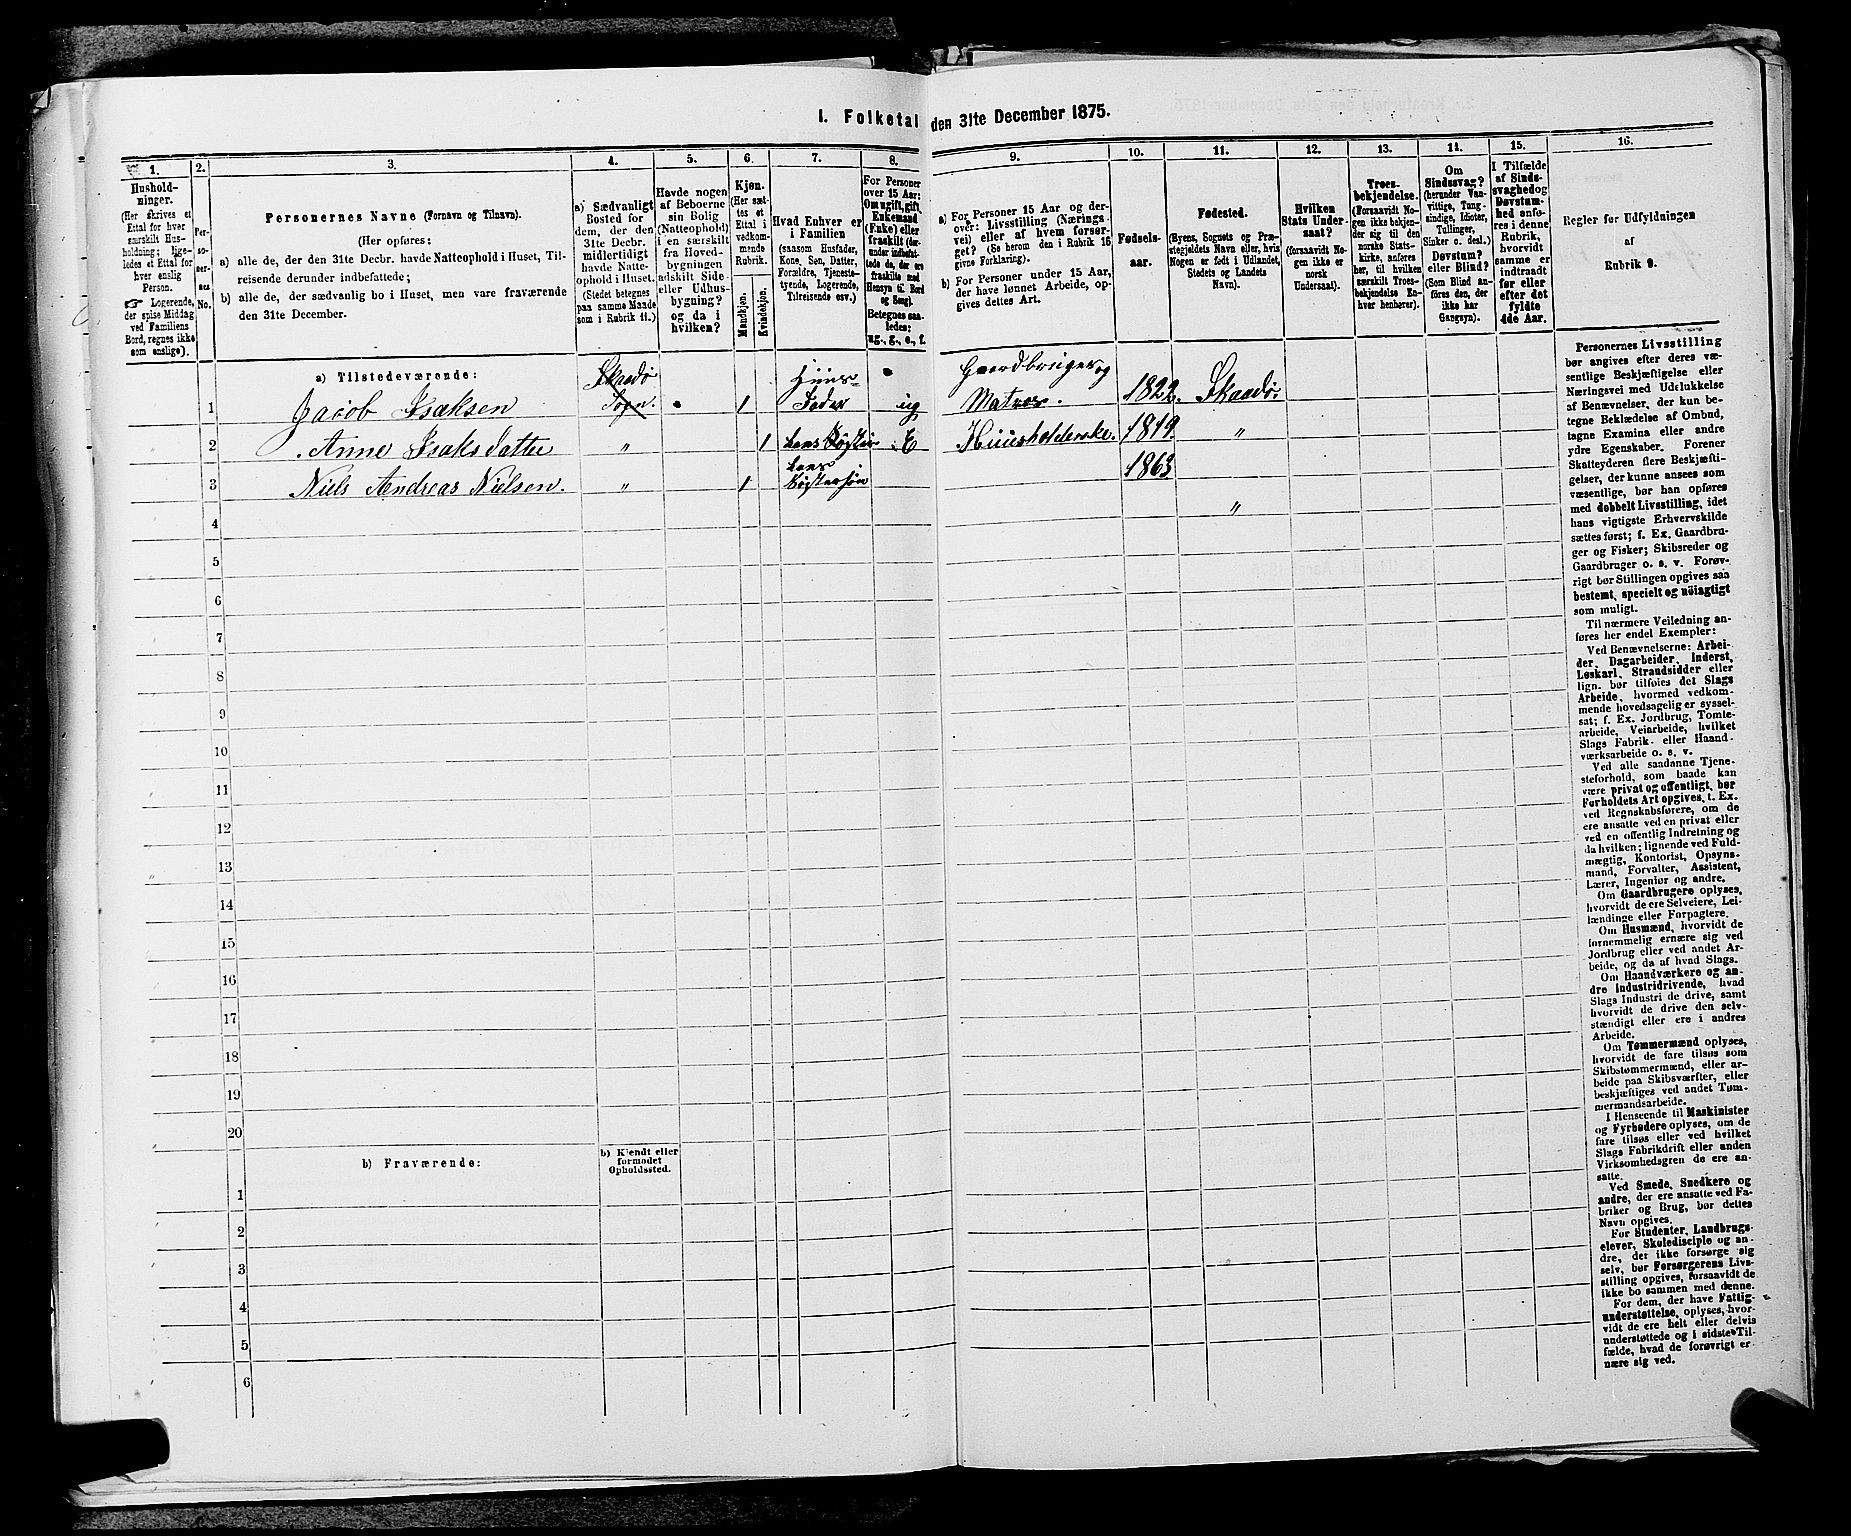 I. Folketal den 31te December 1875.
1.
Husholdninger.
(Her skrives et
Ettal for hver
særskilt Husholdning;
ligeledes et Ettal for
hver enslig
Person.
☞ Logerende,
der spise Middag
ved Familiens
Bord, regnes ikke
som enslige).
2.
Personernes
No.
3.
Personernes Navne (Fornavn og Tilnavn).
(Her opføres:
a) alle de, der den 31te Decbr. havde Natteophold i Huset, Tilreisende
derunder indbefattede;
b) alle de, der sædvanlig bo i Huset, men vare fraværende
den 31te December.
4.
a) Sædvanligt
Bosted for
dem, der den
31te Decbr.
midlertidigt
havde Natteophold
i Huset.
(Stedet betegnes
paa samme Maade
som i Rubrik 11.)
5.
Havde nogen
af Beboerne
sin Bolig
(Natteophold)
i en særskilt
fra Hovedbygningen
adskilt Side-
eller Udhusbygning?
og da i
hvilken?
6.
Kjøn.
(Her sættes
et
Ettal i
vedkommende
Rubrik.
Mandkjøn.
Kvindekjøn.
7.
Hvad Enhver er
i Familien
(saasom Husfader,
Kone, Søn, Datter,
Forældre, Tjenestetyende,
Logerende,
Tilreisende osv.)
8.
For Personer
over 15 Aar:
Om ugift, gift,
Enkemand
(Enke) eller
fraskilt (derunder
indbefattede
de, der ere
fraskilte med
Hensyn til Bord
og Seng).
Betegnes saaledes:
ug., g., e., f.
9.
a) For Personer 15 Aar og derover:
Livsstilling (Næringsvei)
eller af hvem forsørget?
(Se herom den i Rubrik 16
givne Forklaring).
b) For Personer under 15 Aar,
der have lønnet Arbeide, opgives
dettes Art.
10.
Fødselsaar.
11.
Fødested.
(Byens, Sognets og Præstegjeldets
Navn eller, hvis
Nogen er født i Udlandet,
Stedets og Landets
Navn).
12.
Hvilken
Stats Undersaat?
(forsaavidt Nogen
ikke er
norsk
Undersaat).
13.
Troesbekjendelse.
(Forsaavidt Nogen
ikke bekjender
sig til den
norske Statskirke,
anføres
her, til hvilken
særskilt Troesbekjendelse
Enhver
henhører).
14.
Om
Sindssvag?
(herunder Vanvittige,
Tungsindige,
Idioter,
Tullinger,
Sinker o. desl.)
Døvstum?
eller Blind?
(Som Blind anføres
den, der
ikke har
Gangsyn).
15.
I Tilfælde
af Sindssvaghed
og
Døvstumhed
anføres
i denne
Rubrik,
hvorvidt
samme er
indtraadt
før eller
efter det
fyldte
4de Aar.
16.
Regler for Udfyldningen
af
Rubrik 9.
a) Tilstedeværende:
1 Jacob Isaksen Skaadø Sogn. 1 Huusfader ug Gaardbruger og Matros. 1822. Skaadø
2 Anne Isaksdatter " 1 hans Søster E Huusholderske. 1819. "
3 Niels Andreas Nielsen. " 1 hans Søstersøn 1863 "
4
5
6
7
8
9
10
11
12
13
14
15
16
17
18
19
20
b) Fraværende:
b) Kjendt eller
formodet
Opholdssted.
1
2
3
4
5
6
Personernes Livsstilling
bør angives efter deres væsentlige
Beskjæftigelse eller
Næringsvei med Udelukkelse
af Benævnelser, der kun betegne
Beklædelse af Ombud,
tagne Examina eller andre
ydre Egenskaber. Forener
Skatteyderen flere Beskjæftigelser,
der kunne ansees som
væsentlige, bør han opføres
med dobbelt Livsstilling, idet
hans vigtigste Erhvervskilde
sættes først; f. Ex. Gaardbruger
og Fisker; Skibsreder og
Gaardbruger o. s. v. Forøvrigt
bør Stillingen opgives saa
bestemt, specielt og nøiagtigt
som muligt.
Til nærmere Veiledning anføres
her endel Exempler:
Ved Benævnelserne: Arbeider,
Dagarbeider, Inderst,
Løskarl, Strandsidder eller
lign. bør tilføies det Slags
Arbeide, hvormed vedkommende
hovedsagelig er sysselsat;
f. Ex. Jordbrug, Tomtearbeide,
Veiarbeide, hvilket
Slags Fabrik- eller Haandværksarbeide
o. s. v.
Ved alle saadanne Tjenesteforhold,
som baade kan
være privat og offentligt, bør
Forholdets Art opgives, f. Ex.
ved Regnskabsførere, om de
ere ansatte ved en privat eller
ved en offentlig Indretning og
da hvilken; lignende ved Fuldmægtig,
Kontorist, Opsynsmand,
Forvalter, Assistent,
Lærer, Ingeniør og andre.
Om Gaardbrugere oplyses,
hvorvidt de ere Selveiere, Leilændinge
eller Forpagtere.
Om Husmænd, hvorvidt de
fornemmelig ernære sig ved
Jordbrug eller ved andet Arbeide,
og da af hvad Slags.
Om Haandværkere og andre
Industridrivende, hvad
Slags Industri de drive, samt
hvorvidt de drive den selvstændigt
eller ere i andres
Arbeide.
Om Tømmermænd oplyses,
hvorvidt de fare tilsøs som
Skibstømmermænd, eller arbeide
paa Skibsværfter, eller
beskjæftiges ved andet Tømmermandsarbeide.
I Henseende til Maskinister
og Fyrbødere oplyses, om de
fare tilsøs eller ved hvilket
Slags Fabrikdrift eller anden
Virksomhedsgren de ere ansatte.
Ved Smede, Snedkere og
andre, der ere ansatte ved Fabriker
og Brug, bør dettes
Navn opgives.
For Studenter, Landbrugselever,
Skoledisciple og andre,
der ikke forsørge sig
selv, bør Forsørgerens Livsstilling
opgives, forsaavidt de
ikke bo sammen med denne.
For dem, der have Fattigunderstøttelse,
oplyses, hvorvidt
de ere helt eller delvis
understøttede og i sidste Tilfælde,
hvad de forøvrigt ernære
sig ved.